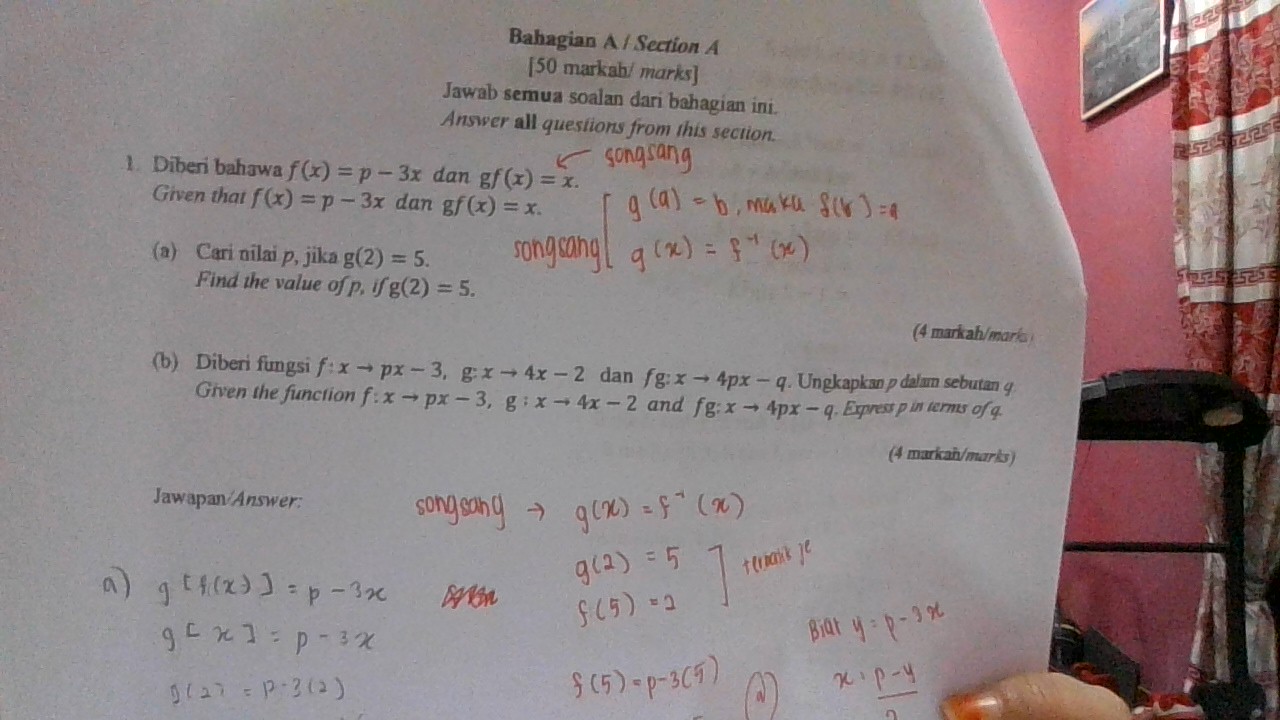 Bahagian A / Section A
[50 markah/ marks]
Jawab semua soalan dari bahagian ini.
Answer all questions from this section.
1. Diberi bahawa f(x) = p − 3x dan gf(x) = x.
← songsang
Given that f(x) = p − 3x dan gf(x) = x.
songsang [ g(a) = b, maka f(b) = a
g(x) = f⁻¹(x)
(a) Cari nilai p, jika g(2) = 5.
Find the value of p, if g(2) = 5.
(4 markah/marks)
(b) Diberi fungsi f: x → px − 3, g: x → 4x − 2 dan fg: x → 4px − q. Ungkapkan p dalam sebutan q.
Given the function f: x → px − 3, g : x → 4x − 2 and fg: x → 4px − q. Express p in terms of q.
(4 markah/marks)
Jawapan/Answer:
songsang → g(x) = f⁻¹(x)
g(2) = 5
f(5) = 2
a) g[f(x)] = p − 3x
g[x] = p − 3x
g(2) = p − 3(2)
f(5) = p − 3(5)
Biar y = p − 3x
x = p − y